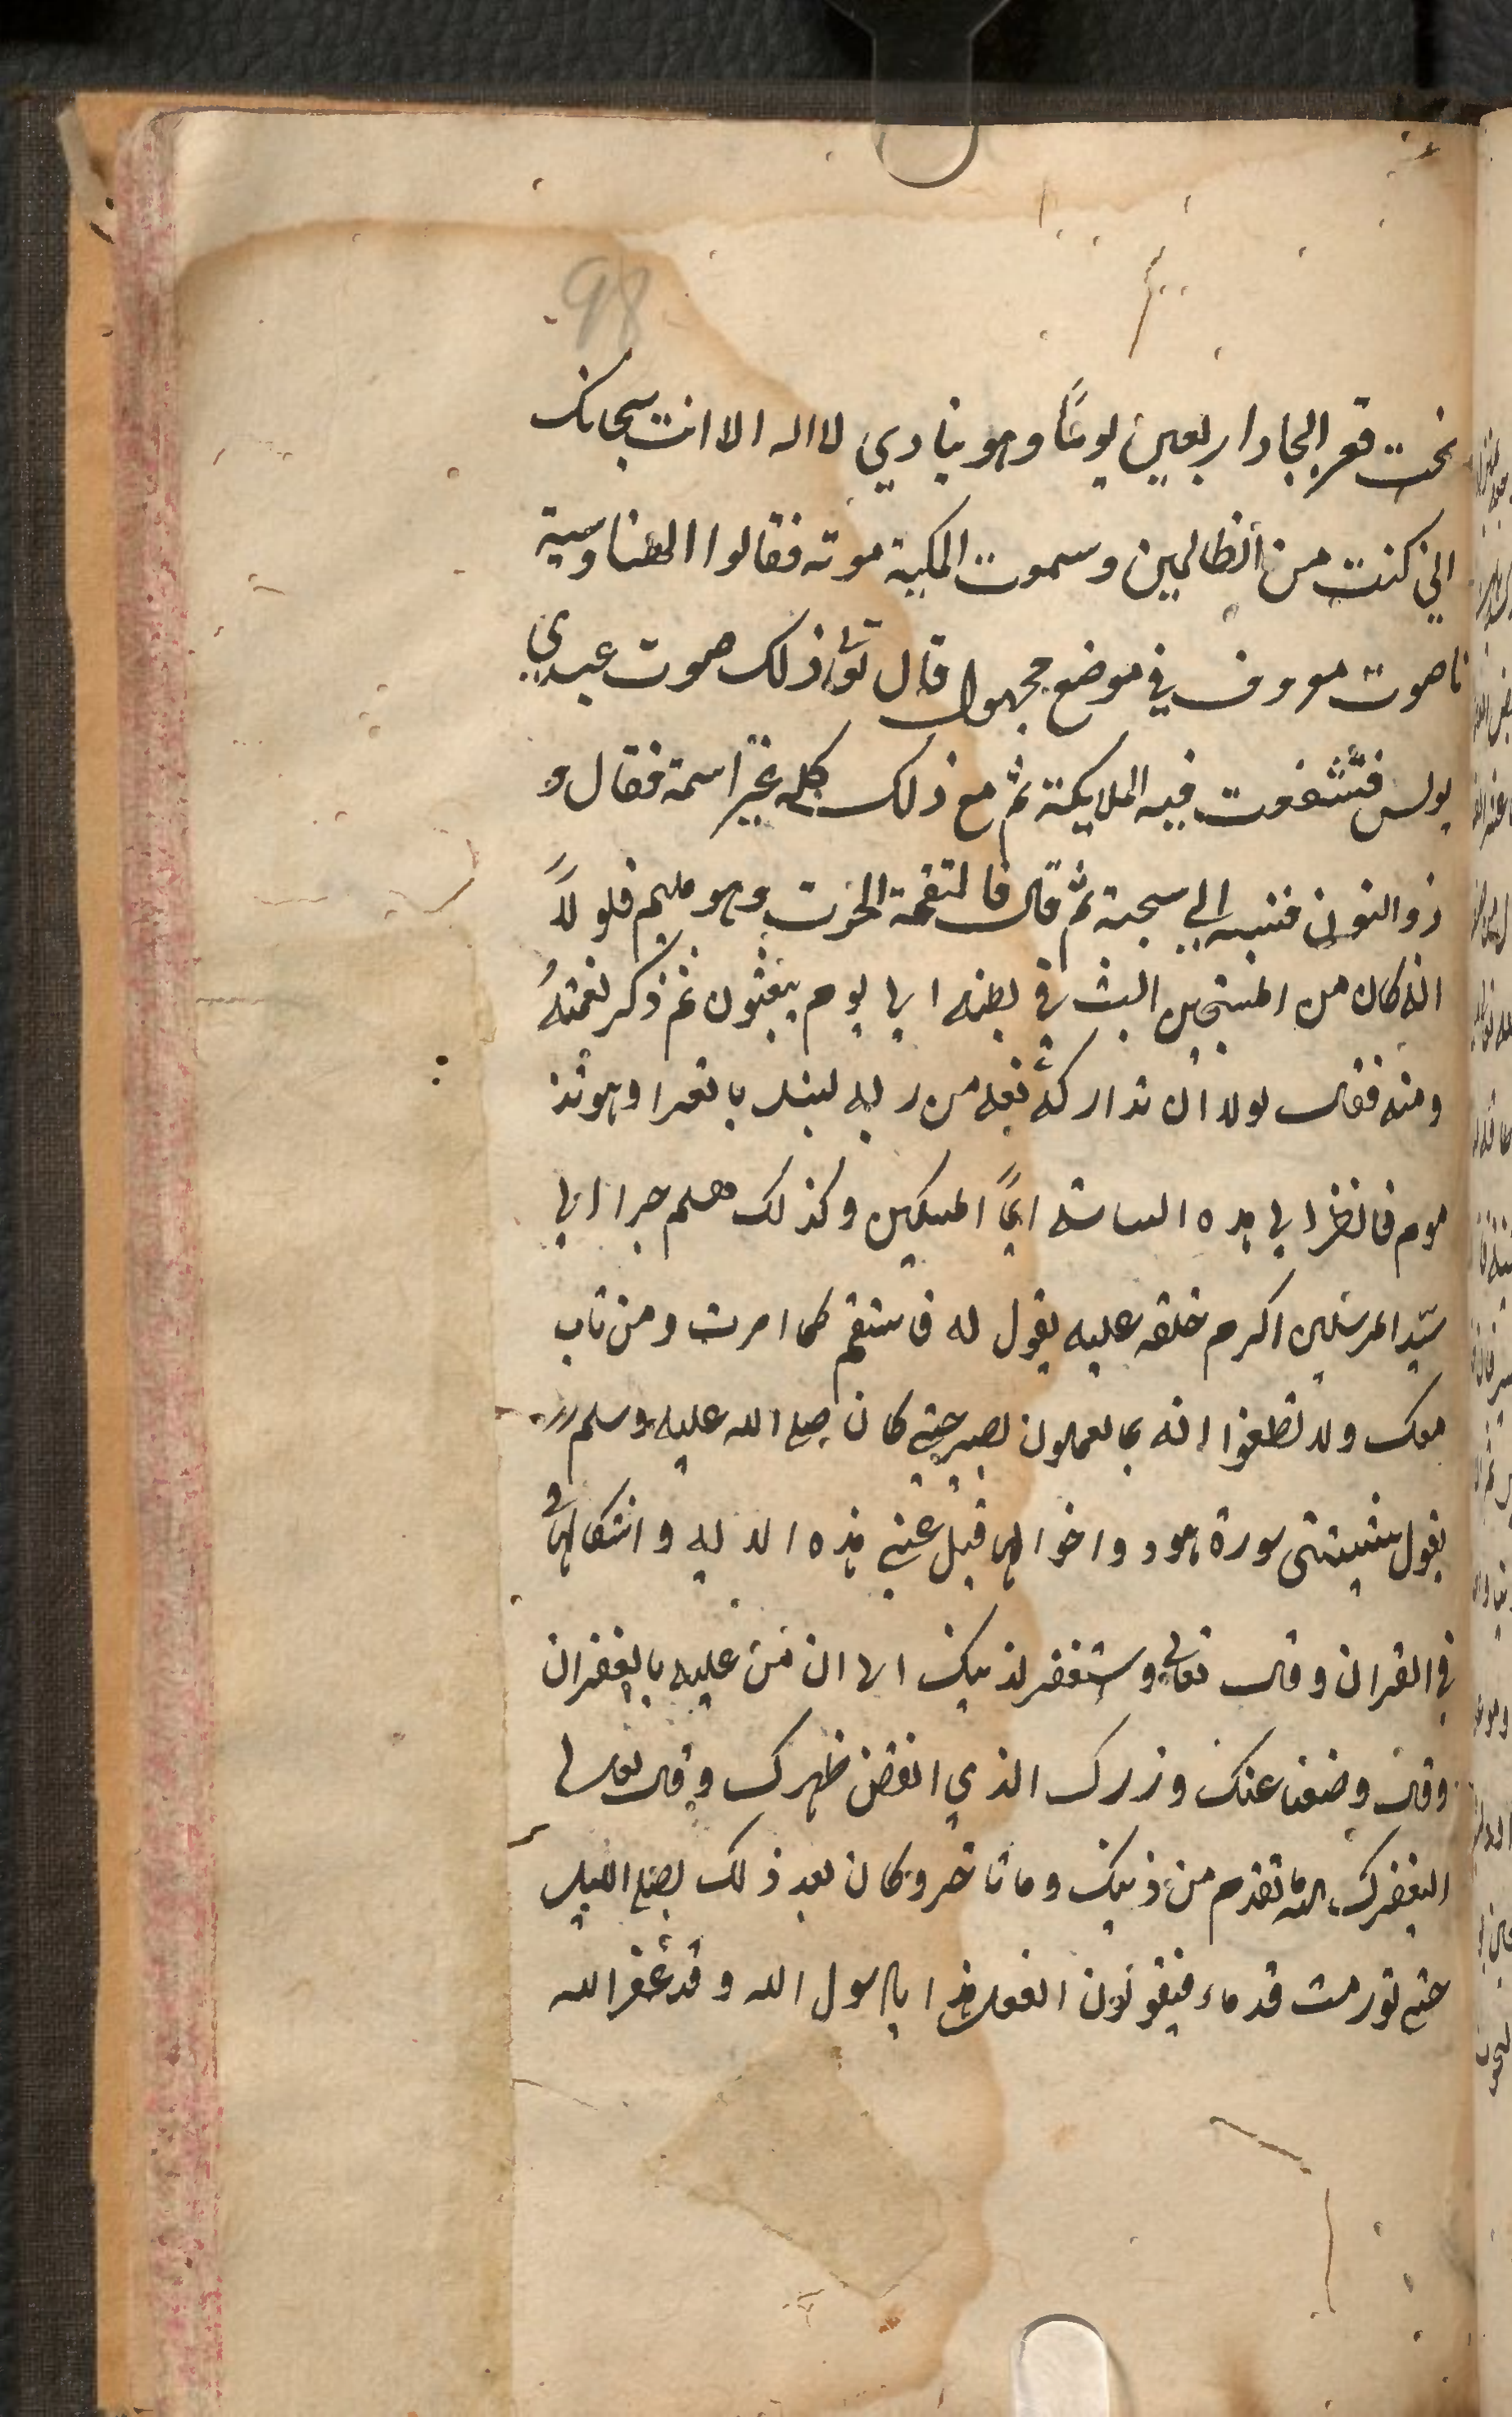 98
تحت قعر البحار اربعين يومًا وهو ينادي لا اله الا انت سبحانك
اني كنت من الظالمين وسموت المكية موته فقالوا الهنا وسية
نا صوت معروف في موضع مجهول قال تعالى ذلك صوت عبدي
يونس فتشفعت فيه الملايكة ثم مع ذلك كله غير اسمة فقال و
ذو النون فنسبه الي سجنة ثم قال فالتقمة الحوت وهو مليم فلولا
انه كان من المسبحين البث في بطنه الي يوم يبعثون ثم ذكر نعمتهُ
ومنه فقال لولا ان تداركه نعمه من ربه لنبذ بالعرا وهو مذ
موم فانظر الي هذه السياسة ايها المسكين وكذلك هلم جرا الي
سيد المرسلين اكرم خلقه عليه يقول له فاستقم كما امرت ومن تاب
معك ولا تطغوا انه بما تعملون بصير حتي كان صلي الله عليه وسلم
يقول شيبتني سورة هود واخواتها قيل عني هذه الايه واشكالها
في القران وقال تعالي واستغفر لذنبك الي ان من عليه بالغفران
وقال وضعنا عنك وزرك الذي انقض ظهرك وقال تعالي
ليغفر لك الله ما تقدم من ذنبك وما تاخر وكان بعد ذلك يصلي الليل
حتي تورمت قدماه فيقولون اتفعل هذا يا رسول الله وقد غفر الله